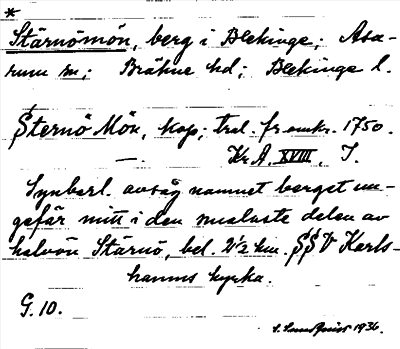 *
Stärnömön, berg i Blekinge; Asa-
rum sn; Bräkne hd; Blekinge l.
Sternö Mön, kop; tral. fr omkr. 1750.
—. Kr. A. XVIII. I.
Synbarl. avsåg namnet berget un-
gefär mitt i den smalaste delen av
halvön Stärnö, bel. 2 1/2 km. SSV Karls-
hamns kyrka.
G. 10.
S. Lundquist 1936.